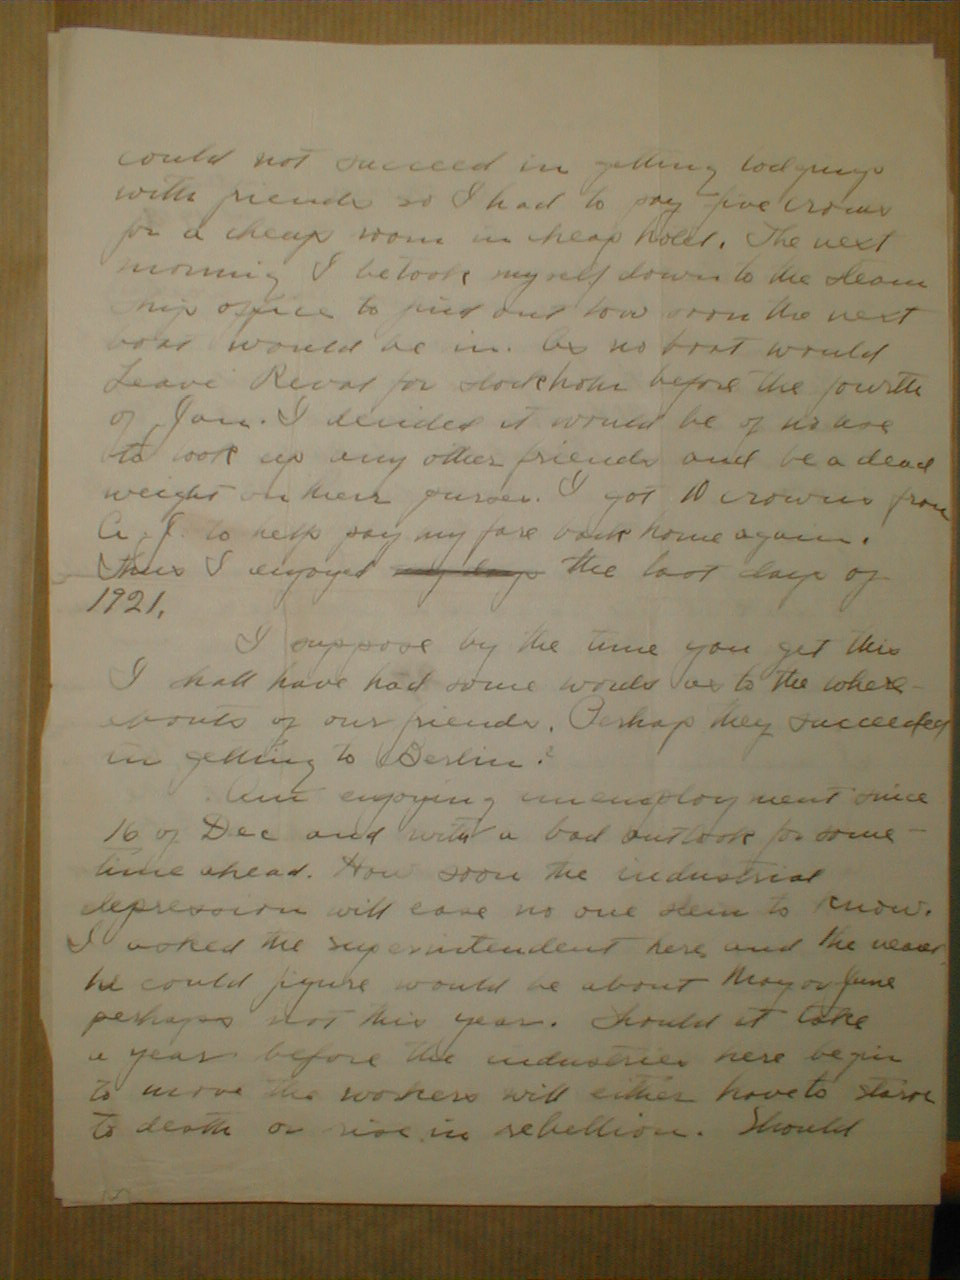 could not succeed in getting lodgings
with friends so I had to pay five crowns
for a cheap room in cheap hotel. The next
morning I betook myself down to the steam
ship office to find out how soon the next
boat would be in. As no boat would
Leave Reval for Stockholm before the fourth
of Jan. I decided it would be of no use
to look up any other friends and be a dead
weight on their purses. I got 10 crowns from
A. J. to help pay my fare back home again.
Thus I enjoyed my days the last days of
1921.
I suppose by the time you get this
I shall have had some words as to the where-
abouts of our friends. Perhaps they succeeded
in getting to Berlin?
Am enjoying unemployment since
16 of Dec and with a bad outlook for some-
time ahead. How soon the industrial
depression will ease no one seem to know.
I asked the superintendent here and the nearest
he could figure would be about May or June
perhaps not this year. Should it take
a year before the industries here begin
to move the workers will either have to starve
to death or rise in rebellion. Should